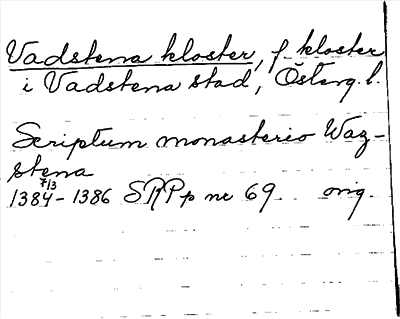 Vadstena kloster, f. kloster
i Vadstena stad, Österg. l.
Scriptum monasterio Waz-
stena
7/3
1384-1386 SRPp nr 69 orig.